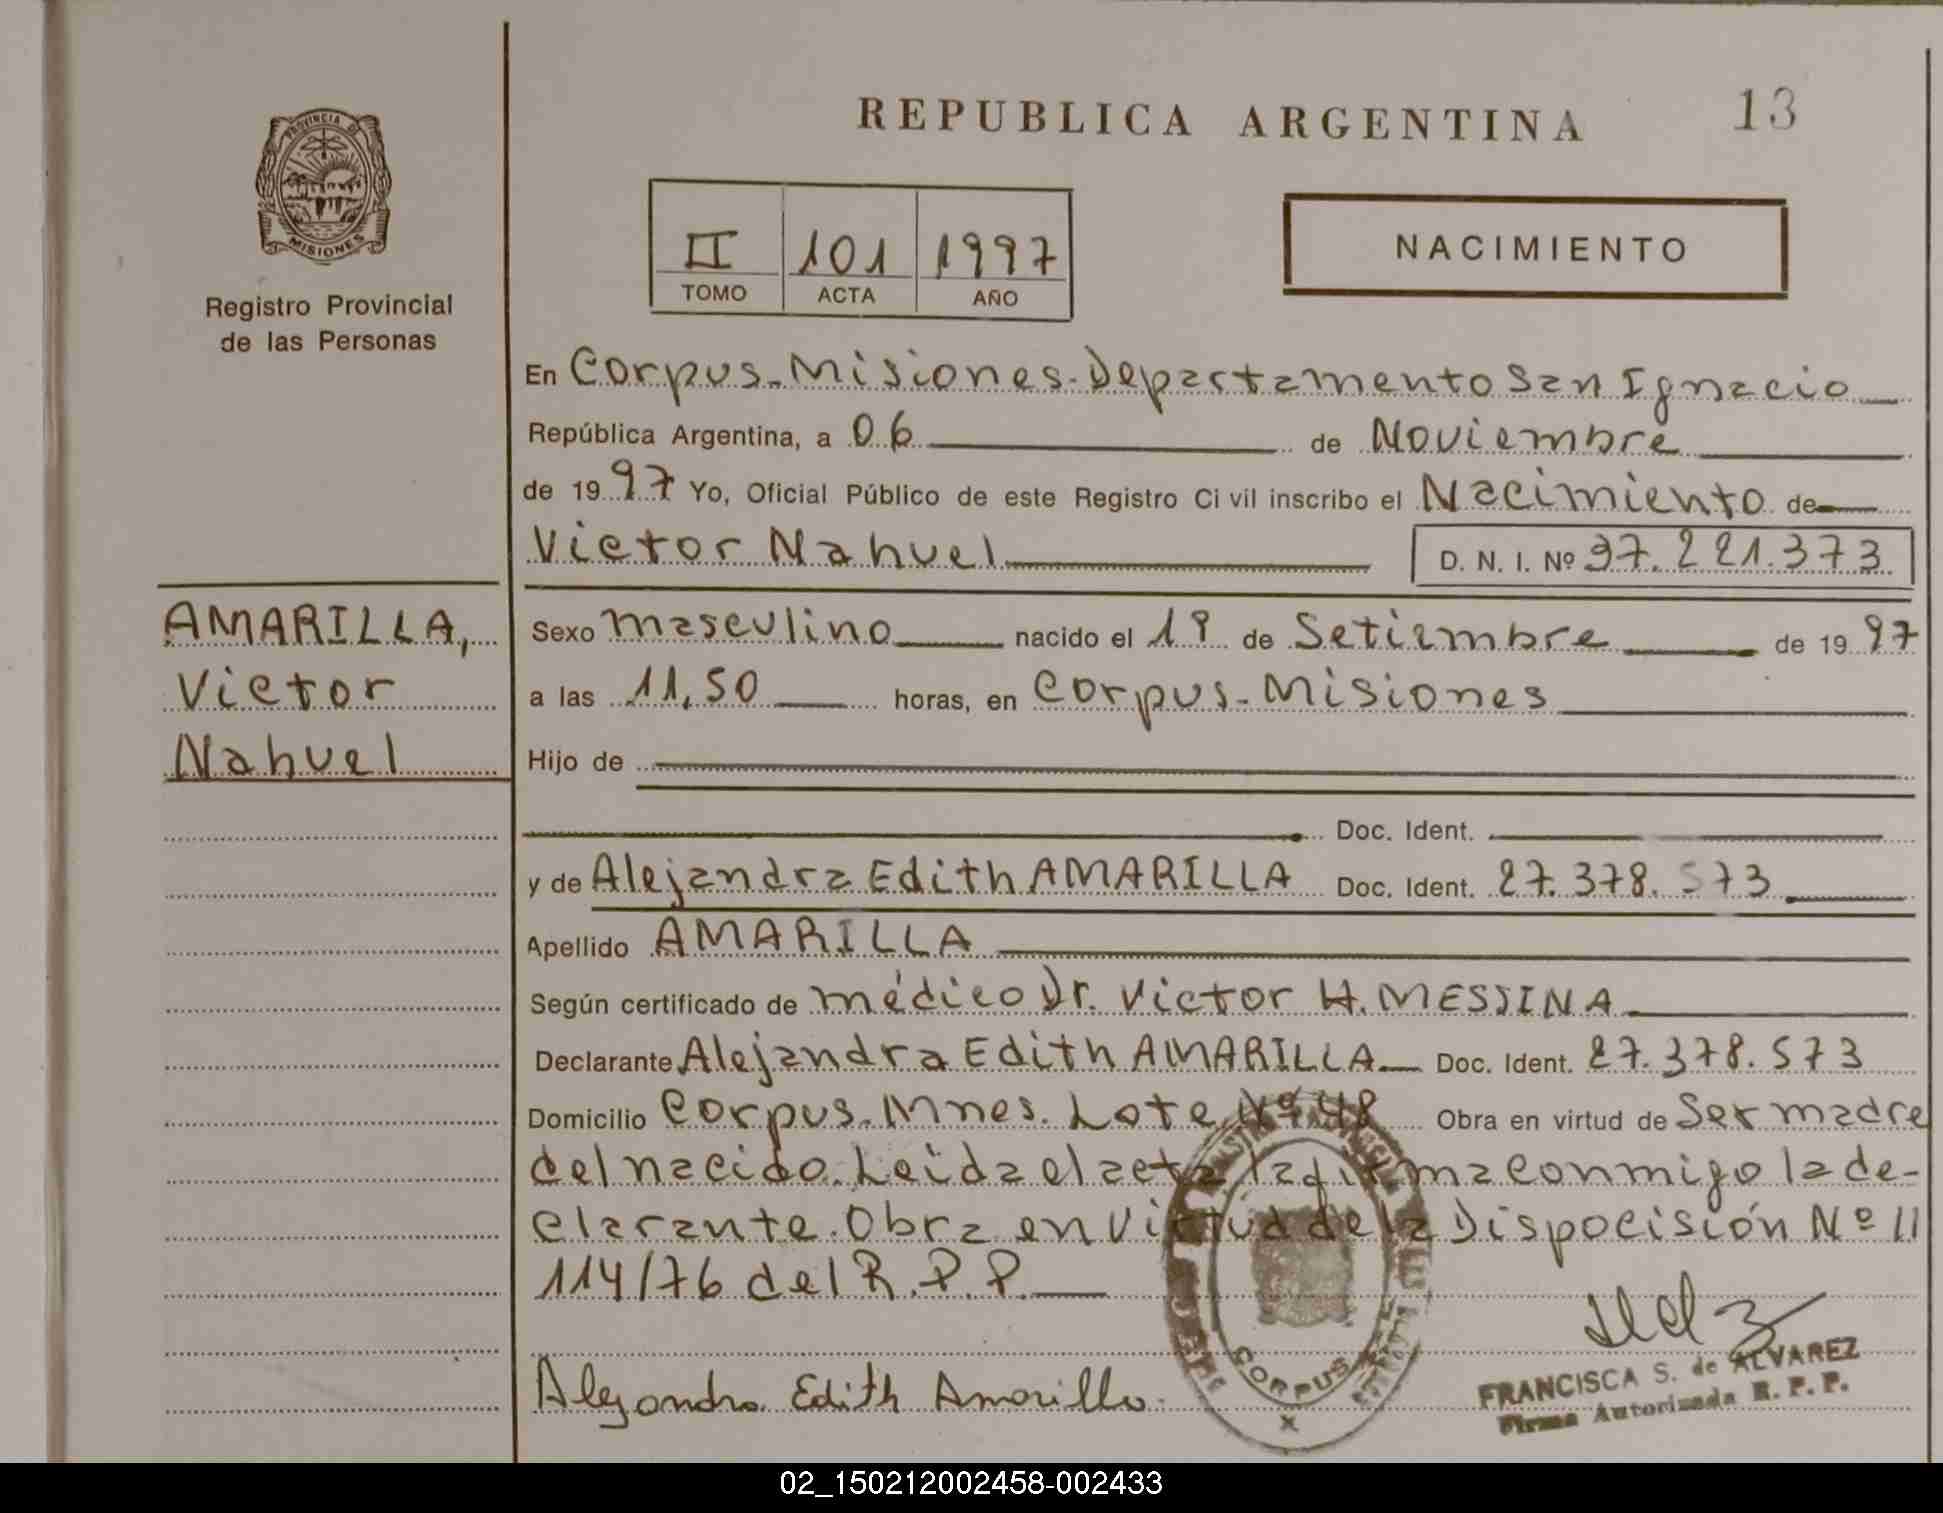 REPUBLICA ARGENTINA
13
PROVINCIA DE
MISIONES
Registro Provincial
de las Personas
II 101 1997
TOMO ACTA AÑO
NACIMIENTO
En Corpus-Misiones-Departamento San Ignacio
República Argentina, a 06 de Noviembre
de 1997 Yo, Oficial Público de este Registro Civil inscribo el Nacimiento de
Victor Nahuel D. N. I. Nº 97.221.373
AMARILLA,
Victor
Nahuel
Sexo masculino nacido el 1º de Setiembre de 1997
a las 11,50 horas, en Corpus-Misiones
Hijo de
Doc. Ident.
y de Alejandra Edith AMARILLA Doc. Ident. 27.378.573
Apellido AMARILLA
Según certificado de médico Dr. Victor H. MESSINA
Declarante Alejandra Edith AMARILLA Doc. Ident. 27.378.573
Domicilio Corpus-Mnes. Lote Nº 48 Obra en virtud de Ser madre
del nacido. Leida el acta la firma conmigo la de-
clarante. Obra en virtud de la Dispocisión Nº 11
114/76 del R.P.P.
CORPUS
Alejandra Edith Amarilla.
FRANCISCA S. de ALVAREZ
Firma Autorizada R. P. P.
02_150212002458-002433